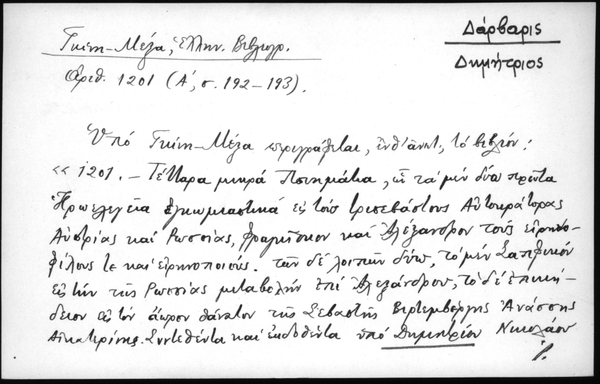 Δάρβαρις
Δημήτριος
Γκίνη-Μέξα, Ἑλλην. Βιβλιογρ.
Ἀριθ. 1201 (Α', σ. 192-193).
Ὑπὸ Γκίνη-Μέξα περιγράφεται, ἐνθ' ἀνωτ., τὸ βιβλίον:
«1201. — Τέτταρα μικρὰ Ποιημάτια, ὧν τὰ μὲν δύω πρῶτα
Ἡρωελεγεῖα ἐγκωμιαστικὰ εἰς τοὺς τρισεβάστους Αὐτοκράτορας
Αὐστρίας καὶ Ρωσσίας, Φραγκίσκον καὶ Ἀλέξανδρον τοὺς εἰρηνο-
φίλους τε καὶ εἰρηνοποιούς. τῶν δὲ λοιπῶν δύω, τὸ μὲν Σαπφικὸν
εἰς τὴν τῆς Ρωσσίας μεταβολὴν ἐπὶ Ἀλεξάνδρου, τὸ δ' ἐπικήδειον
εἰς τὸν ἄωρον θάνατον τῆς Σεβαστῆς Βιρτεμβέργης Ἀνάσσης
Αἰκατερίνης. Συντεθέντα καὶ ἐκδοθέντα ὑπὸ Δημητρίου Νικολάου